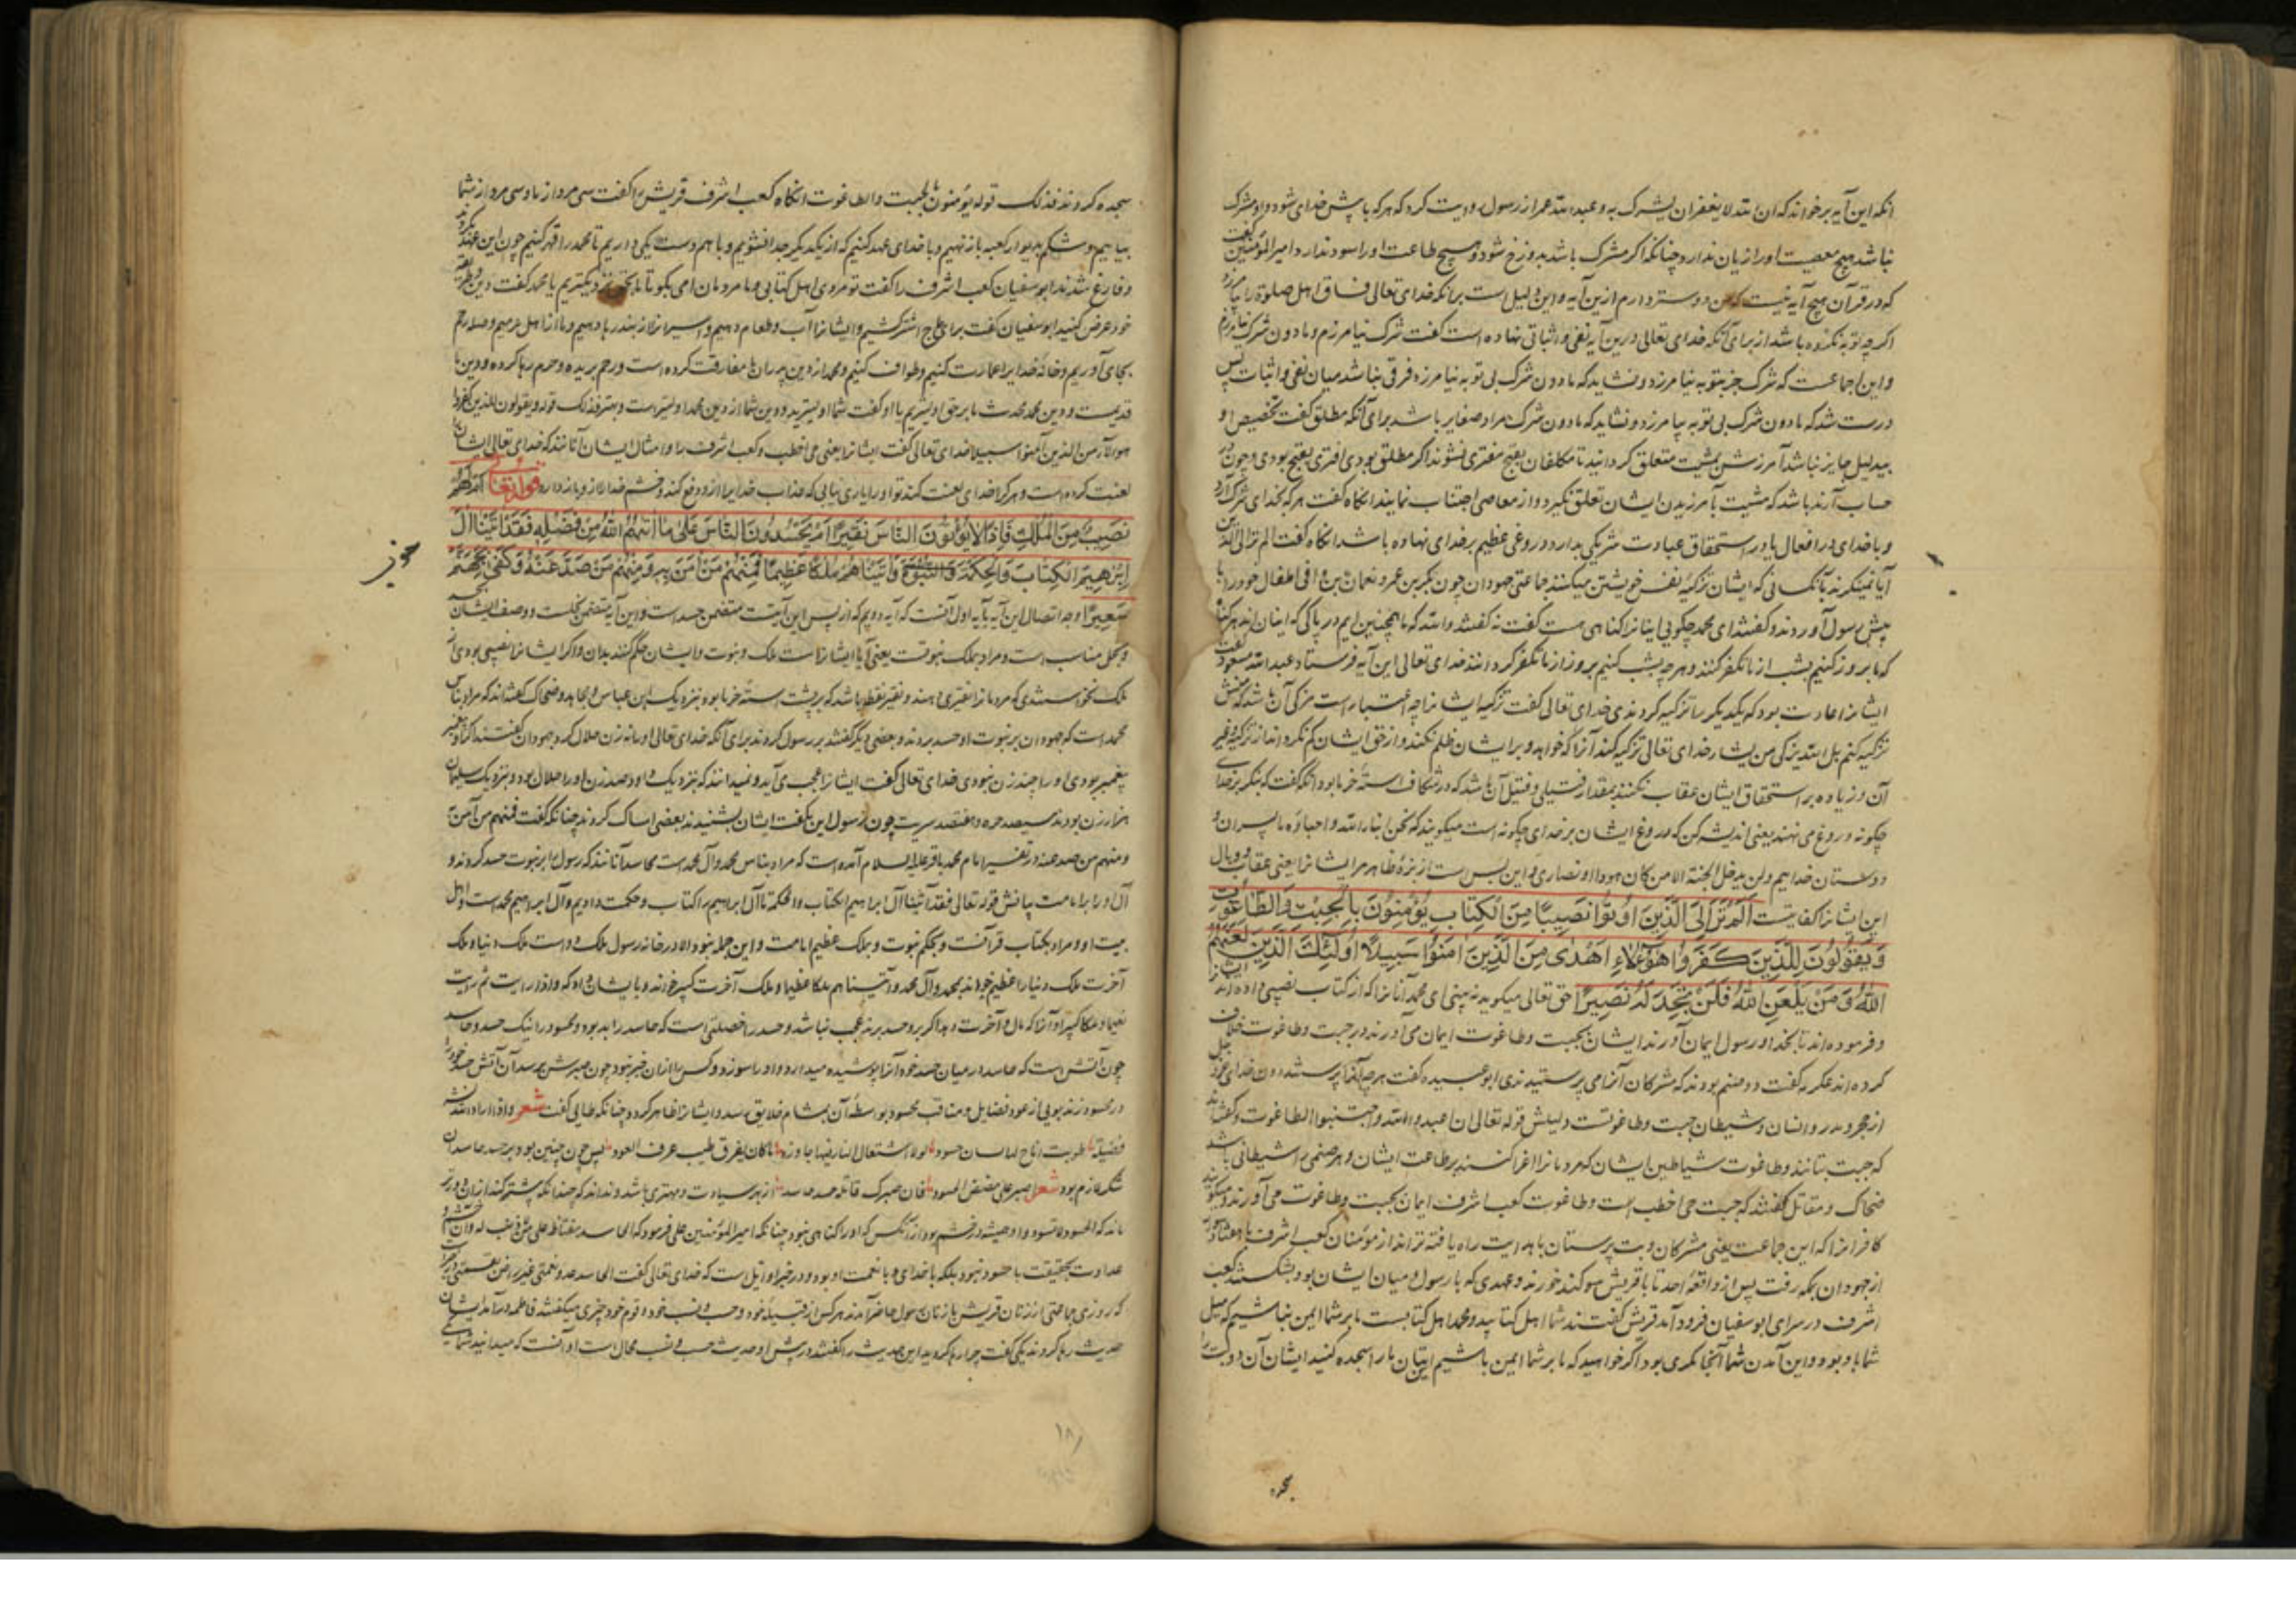 انکه این آیه برخواند که ان الله لا یغفر ان یشرک به و عبد الله عمر از رسول روایت کرد که هر که با پیش خدای شود و او مشرک
نباشد هیچ معصیت او را زیان ندارد چنانکه اگر مشرک باشد بدوزخ شود و هیچ طاعت او را سود ندارد امیر المؤمنین گفت
که در قرآن هیچ آیه نیست که من دوستر دارم ازین آیه و این دلیل است برانکه خدای تعالی فساق اهل صلوة را بیامرزد
اگر چه توبه نکرده باشد از برای آنکه خدای تعالی درین آیه نفی و اثباتی نهاده است گفت شرک نیامرزم و مادون شرک بیامرزم
و این اجماعست که شرک جز بتوبه نیامرزد و نشاید که مادون شرک بی توبه نیامرزد فرقی نباشد میان نفی و اثبات پس
درست شد که مادون شرک بی توبه بیامرزد و نشاید که مادون شرک مراد صغایر باشد برای آنکه مطلق گفت تخصیص او
بیدلیل جایز نباشد آمرزش بمشیت متعلق گردانید تا مکلفان بقبیح مغری نشوند اگر مطلق بودی اغری بقبیح بودی و چون در
حساب آرند باشد که مشیت بآمرزیدن ایشان تعلق نگیرد و از معاصی اجتناب نمایند انکاه گفت هر که بخدای شرک آرد
و با خدای در افعال یا در استحقاق عبادت شریکی بدارد دروغی عظیم بر خدای نهاده باشد انکاه گفت الم تر الی الذین
آیا نمینگرند بآنکسانی که ایشان تزکیه نفس خویشتن میکنند جماعتی جهودان چون بحر بن عمرو نعمان بن اوفی اطفال خود را با
پیش رسول آوردند و گفتند ای محمد چگویی اینانرا گناهی هست گفت نه گفتند والله که ما همچنین ایم در پاکی که اینان اند هر گناه
که ما بروز کنیم بشب از ما تکفر کنند و هر چه بشب کنیم بروز از ما تکفر کردانند خدای تعالی این آیه فرستاد عبد الله مسعود گفت
ایشانرا عادت بود که یکدیگر را تزکیه کردندی خدای تعالی گفت تزکیه ایشانرا چه اعتبار است مزکی آن باشد که منش
تزکیه کنم بل الله یزکی من یشاء خدای تعالی تزکیه کند آنرا که خواهد و بر ایشان ظلم نکند و از حق ایشان کم نکرداند از تزکیه و غیر
آن و زیاده بر استحقاق ایشان عقاب نکنند بمقدار فتیلی و فتیل آن باشد که در شکاف استه خرما بود آنگه گفت که بنگر بر خدای
چگونه دروغ می نهند یعنی اندیشه کن که دروغ ایشان بر خدای چگونه است میگویند که نحن ابناء الله و احباؤه ما پسران و
دوستان خداییم و لن یدخل الجنة الا من کان هودا او نصاری و این بس است از بزه ظاهر مر ایشانرا یعنی عقاب و وبال
این ایشانرا کفایتست اَلَمْ تَرَ اِلَی الَّذینَ اُوتُوا نَصیبًا مِنَ الْکِتابِ یُؤْمِنُونَ بِالْجِبْتِ وَالطّاغُوتِ
وَیَقُولُونَ لِلَّذینَ کَفَرُوا هٰؤُلاءِ اَهْدٰی مِنَ الَّذینَ اٰمَنُوا سَبیلاً اُولٰئِکَ الَّذینَ لَعَنَهُمُ
اللهُ وَمَنْ یَلْعَنِ اللهُ فَلَنْ تَجِدَ لَهُ نَصیرًا حق تعالی میگوید نه بینی ای محمد آنانرا که از کتاب نصیبی داده اند ایشانرا
و فرموده اند تا بخدا و رسول ایمان آورند ایشان بجبت و طاغوت ایمان می آورند در جبت و طاغوت خلاف
کرده اند عکرمه گفت دو صنم بودند که مشرکان آنرا می پرستیدندی ابو عبیده گفت هر چه آنرا پرستند دون خدای عز و جل
از حجر و مدر و انسان و شیطان جبت و طاغوتست دلیلش قوله تعالی ان اعبدوا الله واجتنبوا الطاغوت و گفته اند
که جبت بتانند و طاغوت شیاطین ایشان که مردمانرا اغرا کنند بر طاعت ایشان و هر صنمی را شیطانی باشد
ضحاک و مقاتل گفتند که جبت حی اخطب است و طاغوت کعب اشرف ایمان بجبت و طاغوت می آورند و میگویند
کافرانرا که این جماعت یعنی مشرکان و بت پرستان با هدایت راه یافته تر اند از مؤمنان کعب اشرف با هفتاد سوار
از جهودان بمکه رفت پس از واقعه احد تا با قریش سوگند خورند و عهدی که با رسول و میان ایشان بود بشکستند کعب
اشرف در سرای ابو سفیان فرود آمد قریش گفتند شما اهل کتابید و محمد اهل کتابست ما بر شما ایمن نباشیم که میل
شما با او بود و این آمدن شما آنجا مکری بود اگر خواهید که ما بر شما ایمن باشیم این بتان ما را سجده کنید ایشان آن دو بت را
سجده
سجده کردند فذلک قوله یؤمنون بالجبت والطاغوت انکاه کعب اشرف قریش را گفت سی مرد از ما و سی مرد از شما
بیاییم و شکم بدیوار کعبه باز نهیم و با خدای عهد کنیم که از یکدیگر جدا نشویم و با هم دست یکی داریم تا محمد را قهر کنیم چون این عهد بکردند
و فارغ شدند ابو سفیان کعب اشرف را گفت تو مردی اهل کتابی و ما مردمان امی بگو تا ما بحق نزدیکتریم یا محمد گفت دین و طریقه
خود عرض کنید ابو سفیان گفت ما برای حاج اشتر کشیم و ایشانرا آب و طعام دهیم و اسیرانرا از بند رها دهیم و ما از اهل حرمیم و صله رحم
بجای آوریم و خانه خدایرا عمارت کنیم و طواف کنیم و محمد از دین پدران ما مفارقت کرده است و رحم بریده و حرم رها کرده و دین ما
قدیمست و دین محمد محدث ما بر حق اولیتریم یا او گفت شما اولیترید و دین شما از دین محمد اولیتر است و بهتر فذلک قوله و یقولون للذین کفروا
هؤلاء اهدی من الذین آمنوا سبیلا خدای تعالی گفت ایشانرا یعنی حی اخطب و کعب اشرف را و امثال ایشان آنانند که خدای تعالی ایشانرا
لعنت کرده است و هر کرا خدای لعنت کند تو او را یاری نیابی که عذاب خدایرا ازو دفع کند و خشم خدا را ازو باز دارد قوله تعالی اَمْ لَهُمْ
نَصیبٌ مِنَ الْمُلْکِ فَاِذًا لا یُؤْتُونَ النّاسَ نَقیرًا اَمْ یَحْسُدُونَ النّاسَ عَلٰی ما اٰتیهُمُ اللهُ مِنْ فَضْلِهِ فَقَدْ اٰتَیْنا اٰلَ
اِبْرٰهیمَ الْکِتابَ وَالْحِکْمَةَ وَالنُّبُوَّةَ وَاٰتَیْناهُمْ مُلْکًا عَظیمًا فَمِنْهُمْ مَنْ اٰمَنَ بِهِ وَمِنْهُمْ مَنْ صَدَّ عَنْهُ وَکَفٰی بِجَهَنَّمَ
سَعیرًا وجه اتصال این آیه بآیه اول آنست که آیه دویم که از پس این آیتست متضمن حسد است و این آیه متضمن بخلست و وصف ایشان بحسد
و بخل مناسب است و مراد بملک نبوتست یعنی آیا ایشانرا است ملک و نبوت و ایشان حکم کنند بدان و اگر ایشانرا نصیبی بودی از
ملک نخواستندی که مردمانرا نقیری دهند و نقیر نقطه باشد که بر پشت استه خرما بود بنزدیک ابن عباس و مجاهد و ضحاک گفته اند که مراد بناس
محمد است که جهودان بر نبوت او حسد بردند و بعضی دیگر گفتند بر رسول کردند برای آنکه خدای تعالی او را نه زن حلال کرد جهودان گفتند اگر او پیغمبر
پیغمبر بودی او را چند زن نبودی خدای تعالی گفت ایشانرا عجب می آید و نمیدانند که بنزدیک داود صد زن او را حلال بود و بنزدیک سلیمان
هزار زن بودند سیصد حره و هفتصد سریت چون رسول این بگفت ایشان بشنیدند بعضی امساک کردند چنانکه گفت فمنهم من آمن به
و منهم من صد عنه و در تفسیر امام محمد باقر علیه السلام آمده است که مراد بناس محمد و آل محمد است محاسد آنانند که رسول را بر نبوت حسد کردند و
آل او را بر امامت بیانش قوله تعالی فقد آتینا آل ابراهیم الکتاب والحکمة ما آل ابراهیم را کتاب و حکمت دادیم و آل ابراهیم محمد است و اهل
بیت او و مراد بکتاب قرآنست و بحکم نبوت و بملک عظیم امامت و این جمله نبود الا در خانه رسول ملک دو است ملک دنیا و ملک
آخرت ملک دنیا را عظیم خواند بمحمد و آل محمد و آتیناهم ملکا عظیما و ملک آخرت کبیر خواند و بایشان داد که و اذا رایت ثم رایت
نعیما و ملکا کبیرا و آنرا که مال و آخرت دهد اگر برو حسد برند عجب نباشد و حسد را خصلتی است که حاسد را بد بود و محسود را نیک حسد و حاسد
چون آتش است که حاسد در میان جسد خود آنرا پوشیده میدارد و او را سوزد و کس را از آن خبر نبود چون صبرش برسد آن آتش حسد خود را
در محسود زند بویی از عود فضایل و مناقب محسود بواسطه آن بمشام خلایق رسد و ایشانرا ظاهر گردد چنانکه طایی گفت شعر و اذا اراد الله نشر
فضیلة طویت اتاح لها لسان حسود لولا اشتعال النار فیما جاورت ما کان یعرف طیب عرف العود پس چون چنین بود بر حسد حاسدان
شکر لازم بود شعر اصبر علی مضض الحسود فان صبرک قاتله حسد حاسد از بهر سیادت و مهتری باشد و نداند که چندانکه بیشتر کند از آن دورتر
ماند که الحسود لا یسود و او همیشه در خشم بود از آنکس که او را گناهی نبود چنانکه امیر المؤمنین علی فرمود که الحاسد مغتاظ علی من لا ذنب له
عداوت بحقیقت با محسود نبود بلکه با خدای و با نعمت او بود و در خبر اوایل است که خدای تعالی گفت الحاسد عدو نعمتی غیر راض بقسمتی
که روزی جماعتی از زنان قریش با زنان رسول حاضر آمدند هر کس از قبیله خود و حسب و نسب خود و قوم خود چیزی میگفتند فاطمه درآمد ایشان
حدیث رها کردند یکی گفت چرا رها کردید این حدیث را گفتند در پیش او حدیث حسب و نسب محال است او آنست که میدانید شما